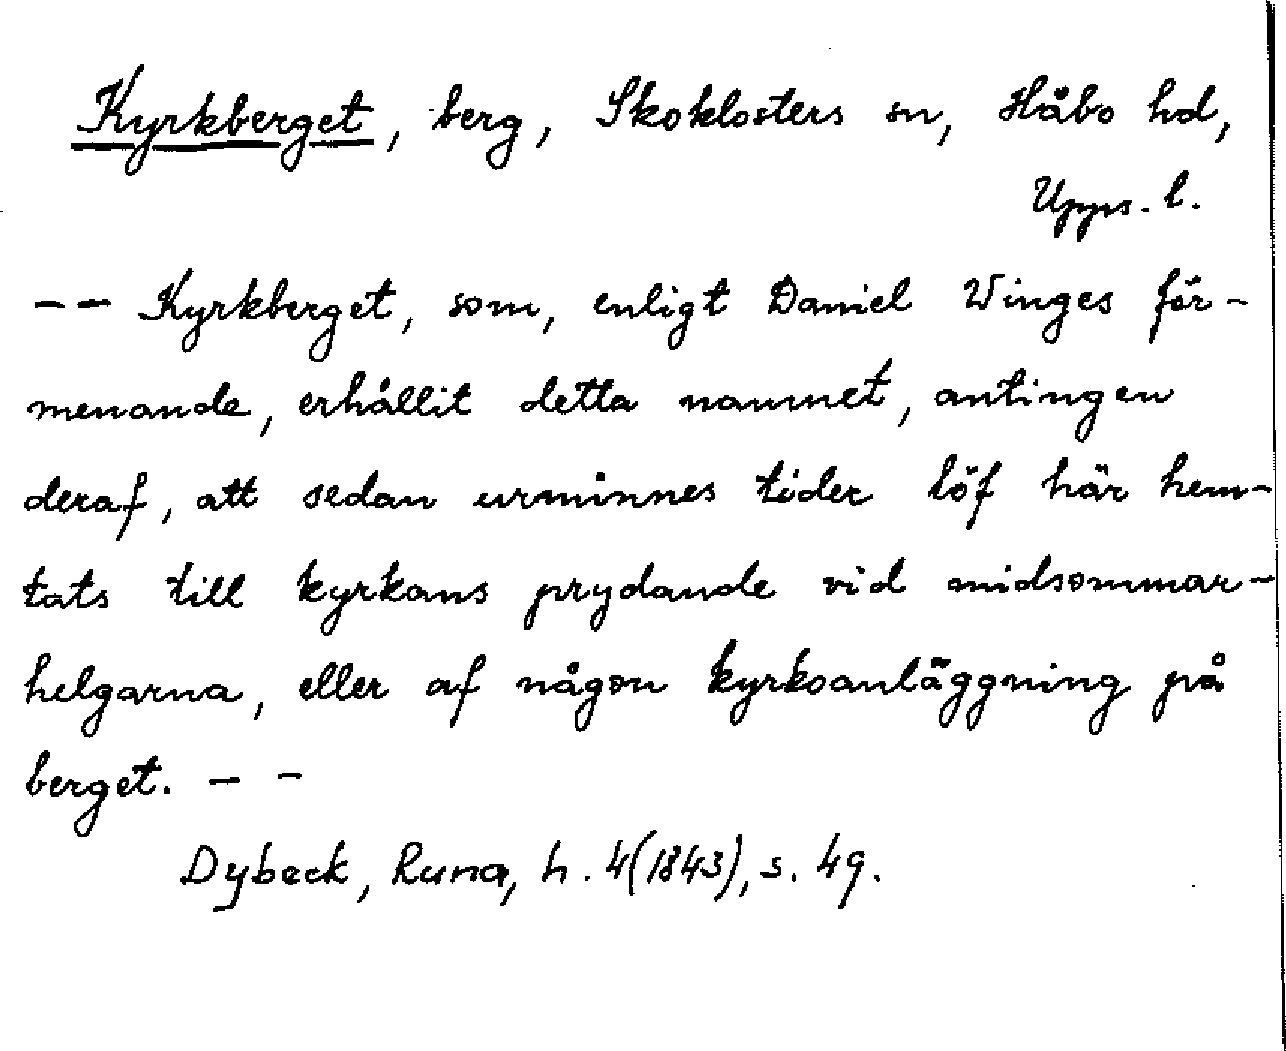 Kyrkberget, berg, Skoklosters sn, Håbo hd,
Upps. l.
-- Kyrkberget, som, enligt Daniel Winges för-
menande, erhållit detta namnet, antingen
deraf, att sedan urminnes tider löf här hem-
tats till kyrkans prydande vid midsommar-
helgarna, eller af någon kyrkoanläggning på
berget. - -
Dybeck, Runa, h. 4(1843), s. 49.